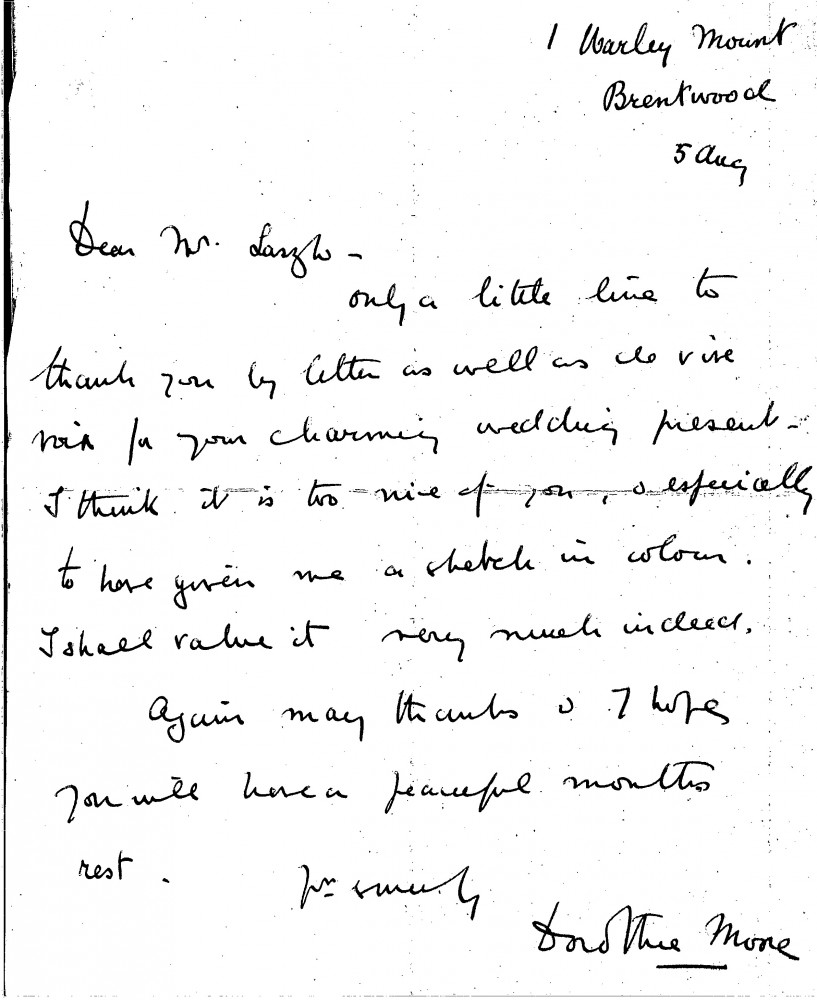 1 Warley Mount
Brentwood
5 Aug
Dear Mr. Laszlo -
only a little line to
thank you by letter as well as de vive
voix for your charming wedding present -
I think it is too nice of you, & especially
to have given me a sketch in colour.
I shall value it very much indeed.
Again many thanks & I hope
you will have a peaceful months
rest.
Yrs sincerely
Dorothie Moore